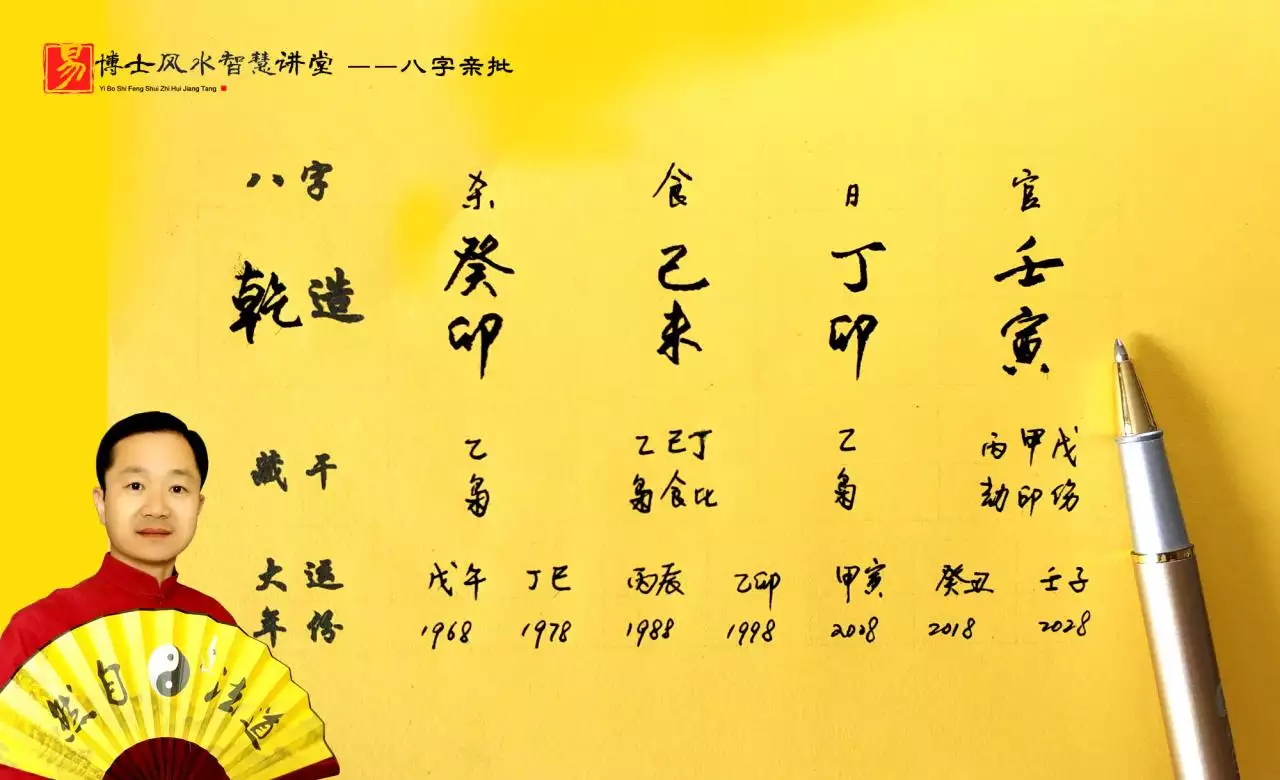 易 博士风水智慧讲堂 ——八字亲批
Yi Bo Shi Feng Shui Zhi Hui Jiang Tang
八字 杀 食 日 官
乾造 癸 己 丁 壬
卯 未 卯 寅
藏干 乙 乙己丁 乙 丙甲戊
枭 枭食比 枭 劫印伤
大运 戊午 丁巳 丙辰 乙卯 甲寅 癸丑 壬子
年份 1968 1978 1988 1998 2008 2018 2028
然自法道